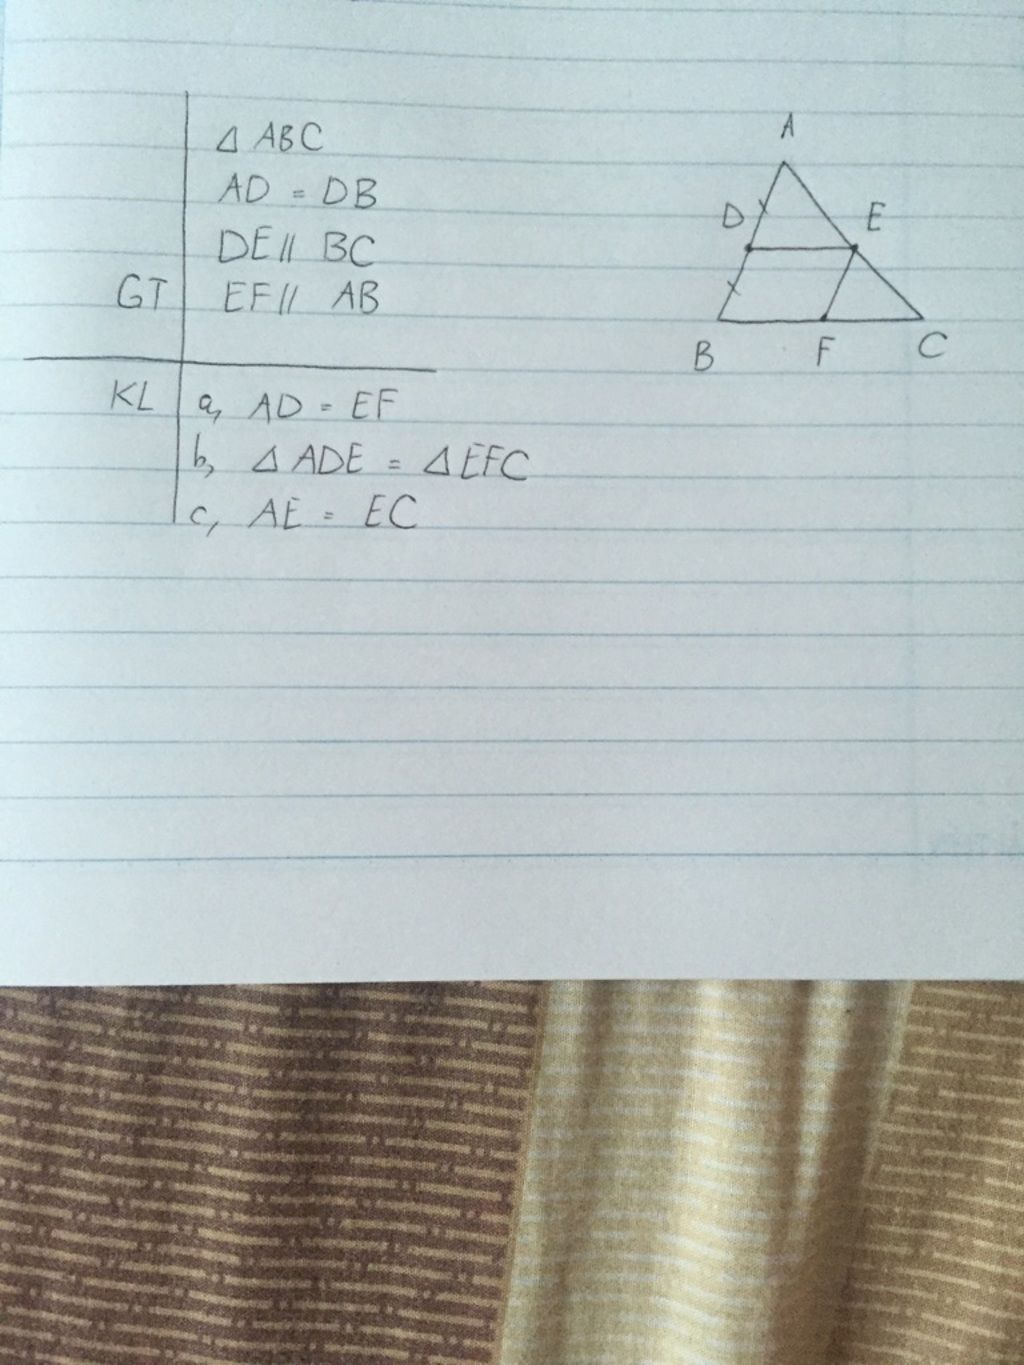 Δ ABC
AD = DB
DE // BC
GT EF // AB
KL a, AD = EF
b, Δ ADE = Δ EFC
c, AE = EC
A
D E
B F C